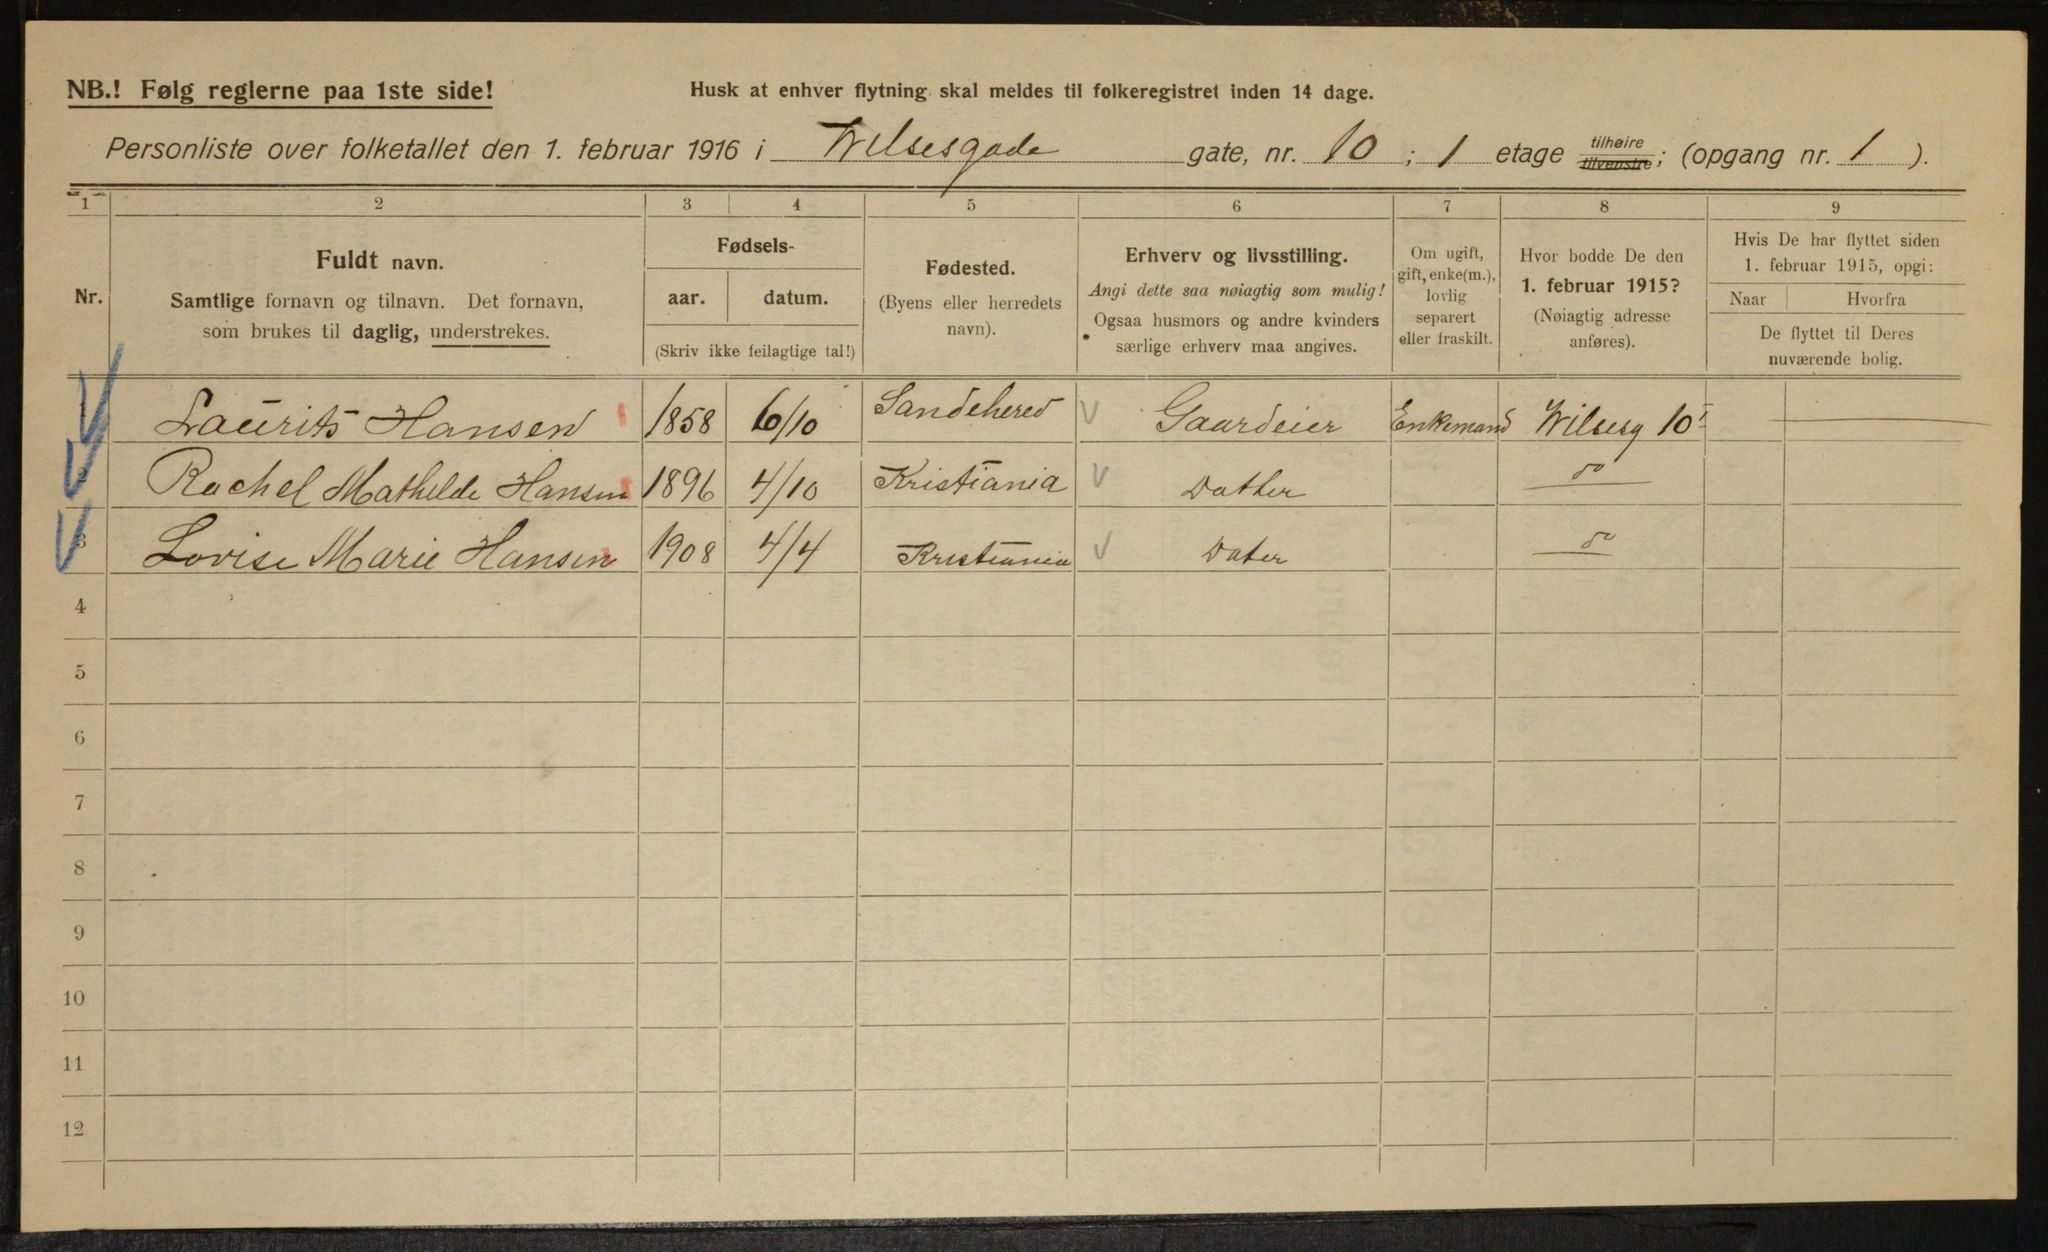 NB.! Følg reglerne paa 1ste side!
Husk at enhver flytning skal meldes til folkeregistret inden 14 dage.
Personliste over folketallet den 1. februar 1916 i Wilsesgade gate, nr. 10 ; 1 etage tilhøire tilvenstre; (opgang nr. 1 ).
1 2 3 4 5 6 7 8 9
Nr.
Fuldt navn.
Samtlige fornavn og tilnavn. Det fornavn,
som brukes til daglig, understrekes.
Fødsels-
aar. datum.
(Skriv ikke feilagtige tal!)
Fødested.
(Byens eller herredets
navn).
Erhverv og livsstilling.
Angi dette saa nøiagtig som mulig!
Ogsaa husmors og andre kvinders
særlige erhverv maa angives.
Om ugift,
gift, enke(m.),
lovlig
separert
eller fraskilt.
Hvor bodde De den
1. februar 1915?
(Nøiagtig adresse
anføres).
Hvis De har flyttet siden
1. februar 1915, opgi:
Naar Hvorfra
De flyttet til Deres
nuværende bolig.
1 Laurits Hansen 1858 6/10 Sandehered Gaardeier Enkemand Wilseg 10 I
2 Rachel Mathilde Hansen 1896 4/10 Kristiania Datter do
3 Lovise Marie Hansen 1908 4/4 Kristiania Dater do
4
5
6
7
8
9
10
11
12